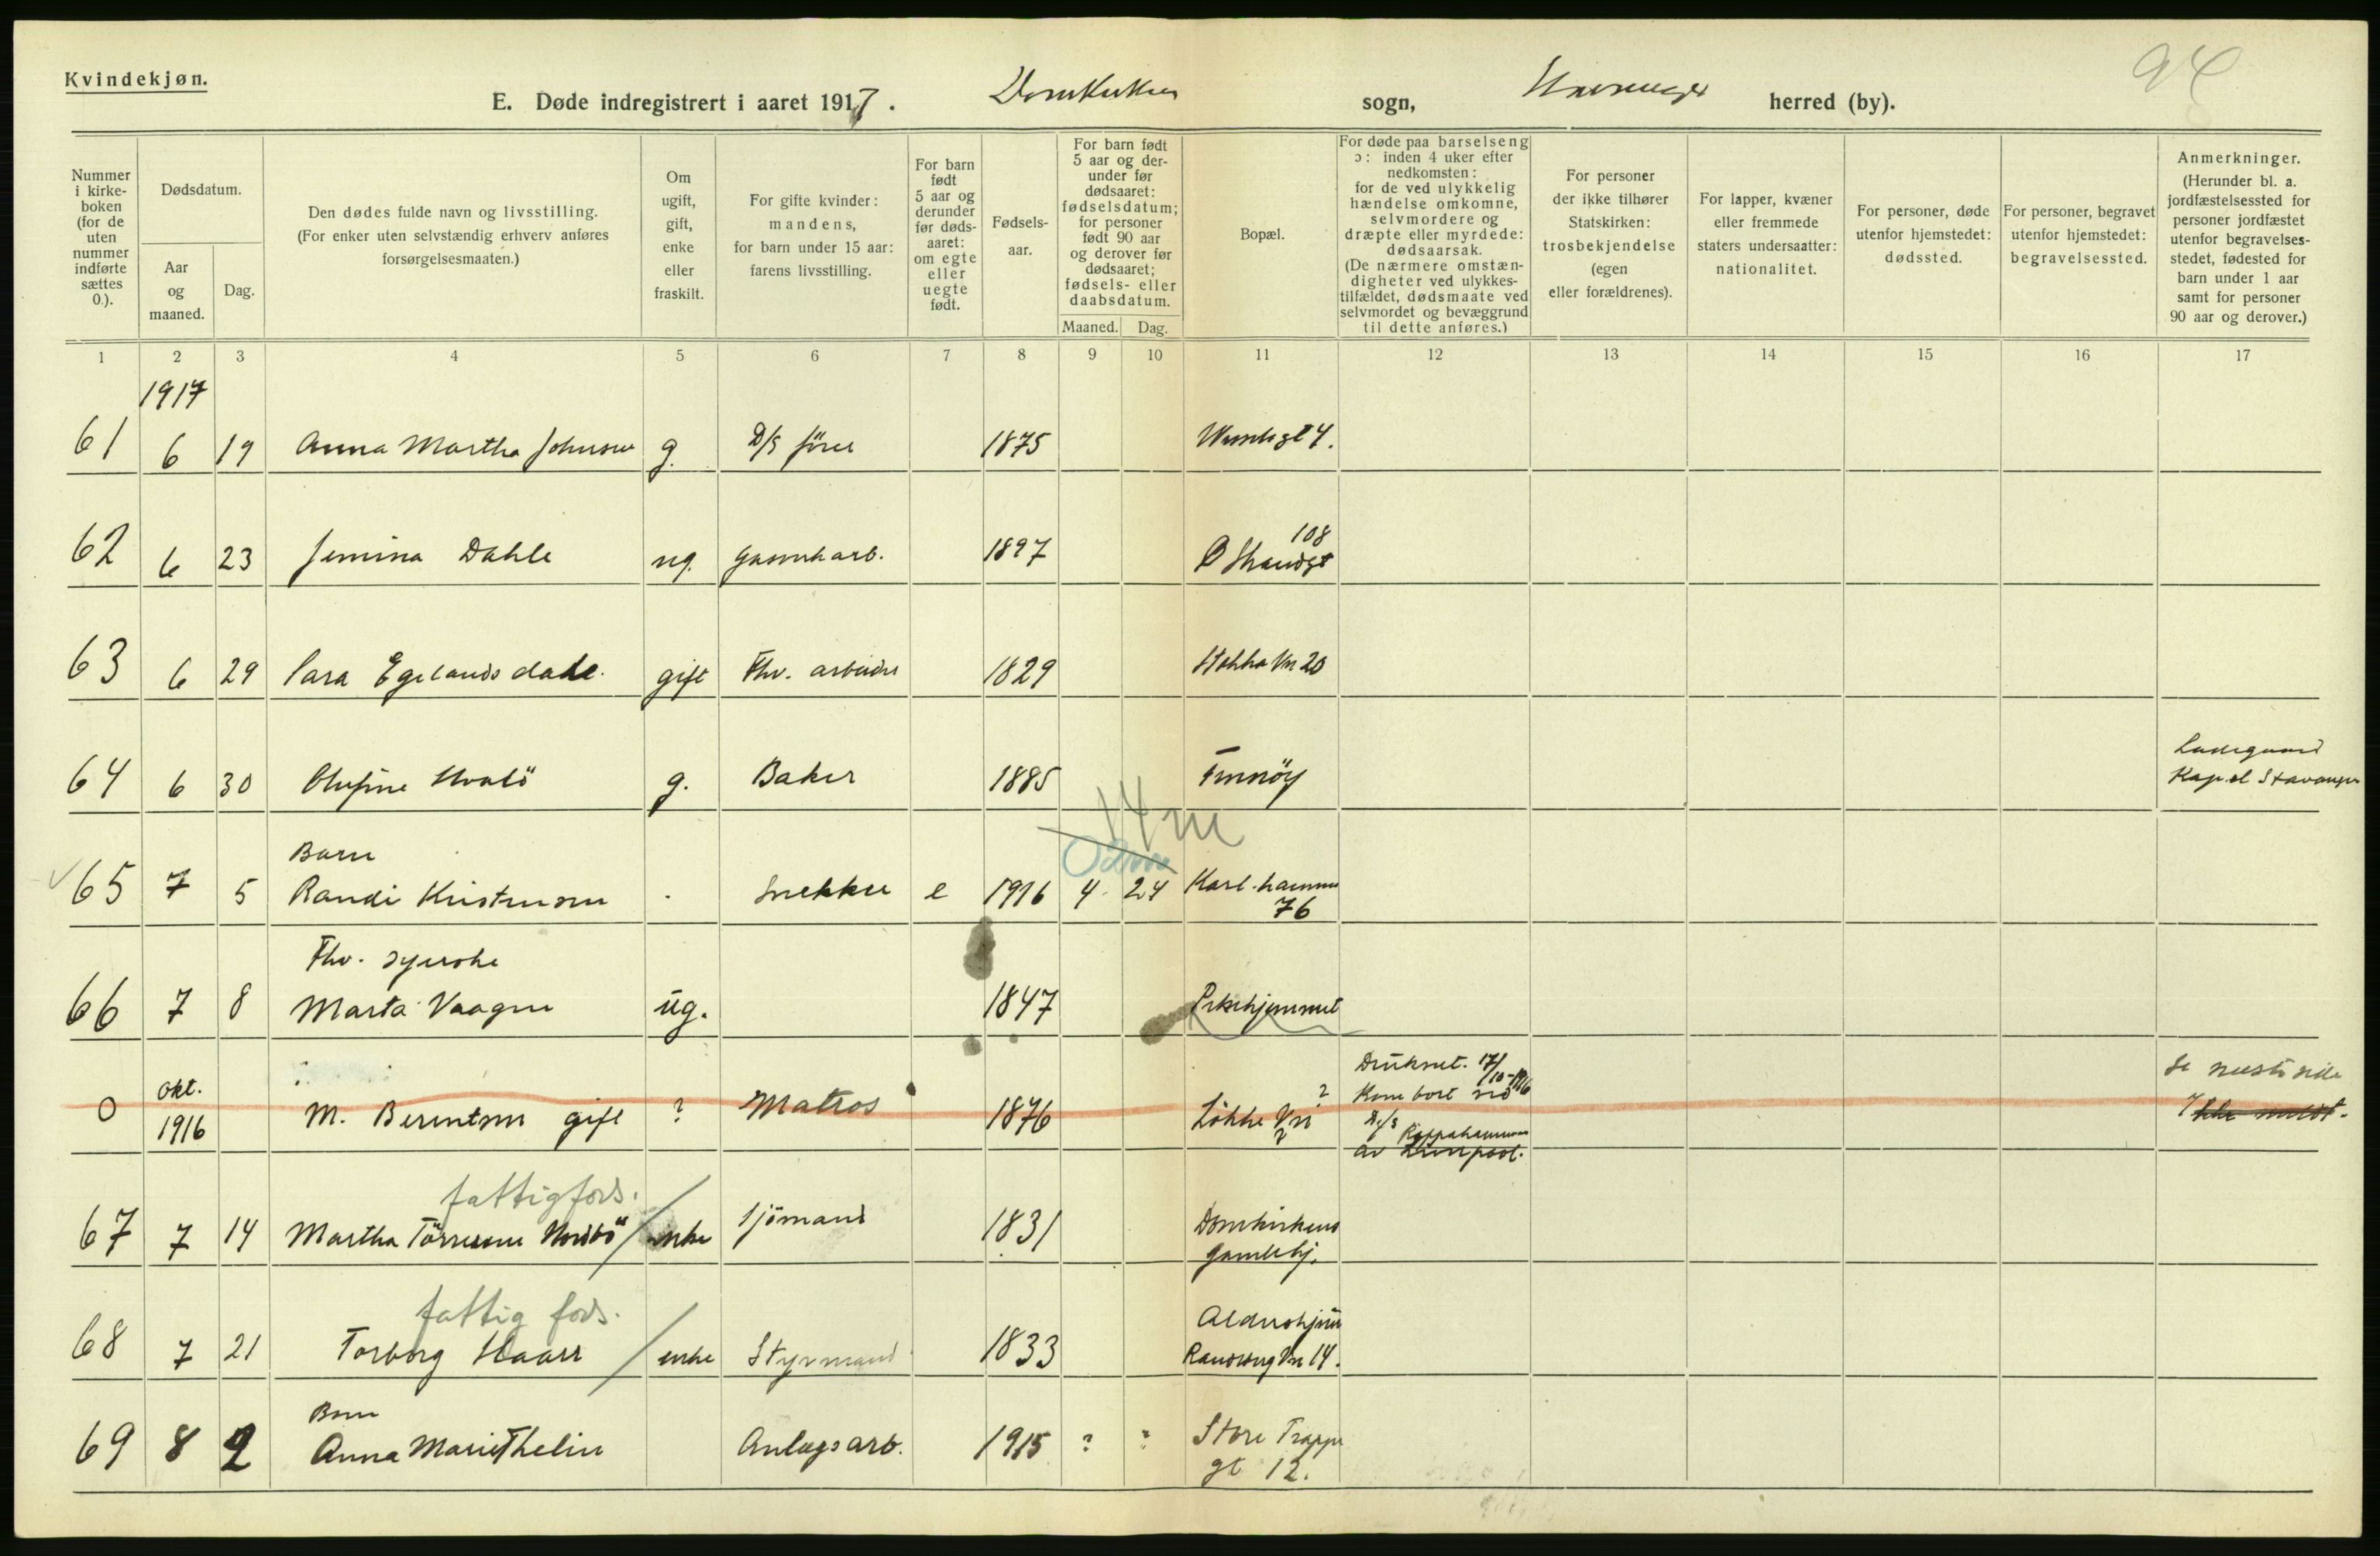 Kvindekjøn.
E. Døde indregistrert i aaret 1917. Domkirken sogn, Stavanger herred (by).
Nummer i kirkeboken (for de uten nummer indførte sættes 0.).
Dødsdatum.
Aar og maaned.
Dag.
Den dødes fulde navn og livsstilling. (For enker uten selvstændig erhverv anføres forsørgelsesmaaten.)
Om ugift, gift, enke eller fraskilt.
For gifte kvinder: mandens, for barn under 15 aar: farens livsstilling.
For barn født 5 aar og derunder før dødsaaret: om egte eller uegte født.
Fødselsaar.
For barn født 5 aar og derunder før dødsaaret: fødselsdatum; for personer født 90 aar og derover før dødsaaret; fødsels- eller daabsdatum.
Maaned. Dag.
Bopæl.
For døde paa barselseng ɔ: inden 4 uker efter nedkomsten: for de ved ulykkelig hændelse omkomne, selvmordere og dræpte eller myrdede: dødsaarsak. (De nærmere omstændigheter ved ulykkestilfældet, dødsmaate ved selvmordet og bevæggrund til dette anføres.)
For personer der ikke tilhører Statskirken: trosbekjendelse (egen eller forældrenes).
For lapper, kvæner eller fremmede staters undersaatter: nationalitet.
For personer, døde utenfor hjemstedet: dødssted.
For personer, begravet utenfor hjemstedet: begravelsessted.
Anmerkninger. (Herunder bl. a. jordfæstelsessted for personer jordfæstet utenfor begravelsesstedet, fødested for barn under 1 aar samt for personer 90 aar og derover.)
1 2 3 4 5 6 7 8 9 10 11 12 13 14 15 16 17
1917
61 6 19 Anna Martha Johnsen g. D/S fører 1875
108
62 6 23 Jemina Dahle ug. 1897 Ø Strandgt
63 6 29 Sara Egelandsdale. gift Fhv. arbeider 1829 Stokka Vn 20
64 6 30 Olufine g. Baker 1885 Finnöy
Ladegaard
Kapel Stavanger
14 m
Barn
65 7 5 Randi Kristensen Snekker e 1916 4 24 Karl-hammer
76
Fhv. syerske
66 7 8 Marta Vaagen ug. 1847 Pleiehjemmet
0 okt.
1916 M. Berentsen gift ? Matros 1876 Løkke Vn ?
Druknet. 17/10-1916
Kom bort ved
D/S Rappahannock
av Liverpool.
Se næste side
Ikke meldt.
fattigfors.
67 7 14 Martha Törresen Nordbö enke Sjömand 1831 Domkirkens
gamlehj.
fattig fors.
68 7 21 Torborg Haarr enke Styrmand 1833 Aldershjem
Vn 14.
Barn
69 8 2 Anna Marie Thelin Anlægsarb. 1915 ? " Store Trappe
gt 12.